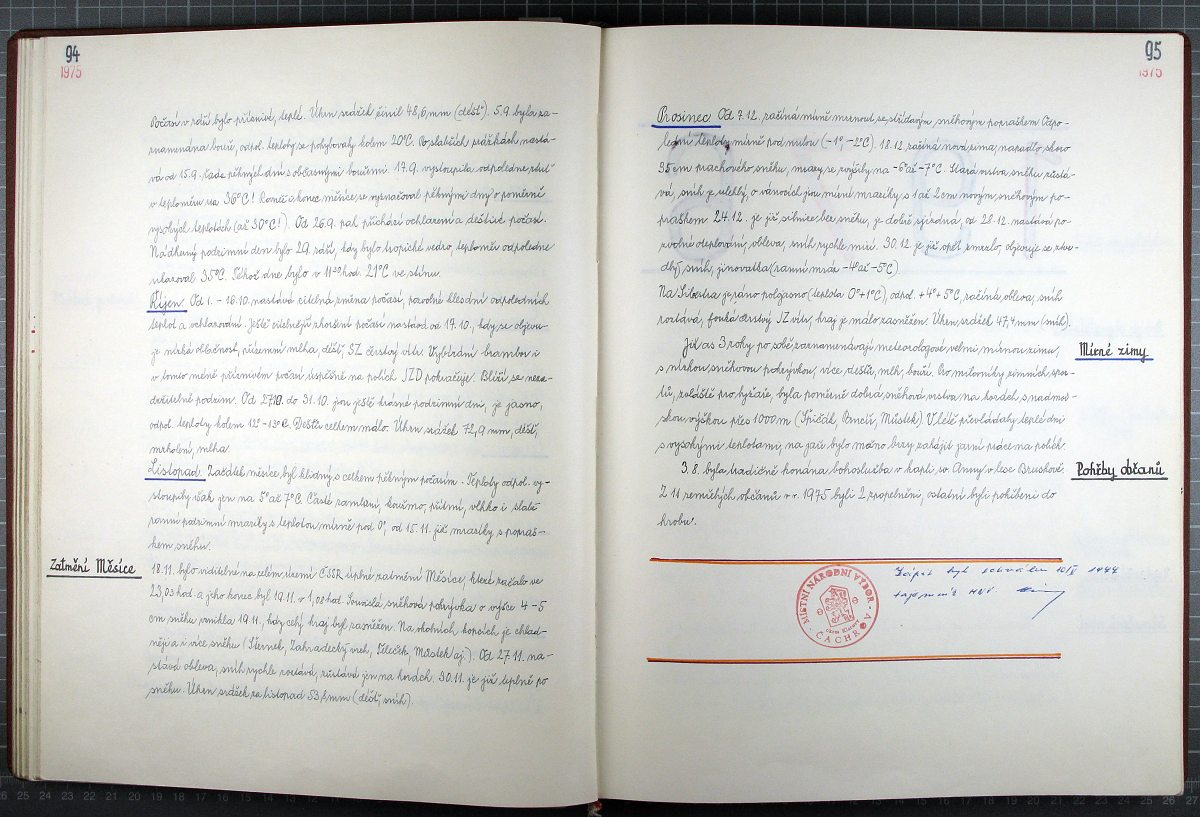 94
1975
Počasí v září bylo příznivé, teplé. Úhrn srážek činil 48,6 mm (déšť). 5.9. byla za-
znamenána bouře, odpol. teploty se pohybovaly kolem 20°C. Po slabších srážkách nastá-
vá od 15.9. řada pěkných dní s občasnými bouřemi. 17.9. vystoupila odpoledne rtuť
v teploměru na 36°C! Rovněž konec měsíce se vyznačoval pěknými dny o poměrně
vysokých teplotách (až 30°C!). Od 26.9. pak přichází ochlazení a deštivé počasí.
Nádherný podzimní den bylo 29. září, kdy bylo tropické vedro, teploměr odpoledne
ukazoval 35°C. Téhož dne bylo v 11 hod. 21°C ve stínu.
Říjen. Od 1. - 16.10. nastává citelná změna počasí, pozvolné klesání odpoledních
teplot a ochlazování. Ještě citelnější zhoršení počasí nastává od 19.10., kdy se objevu-
je nízká oblačnost, přízemní mlha, déšť, SZ čerstvý vítr. Vybírání brambor i
v tomto méně příznivém počasí úspěšně na polích JZD pokračuje. Blíží se neza-
držitelně podzim. Od 27.10. do 31.10. jsou ještě krásné podzimní dni, je jasno,
odpol. teploty kolem 12°-13°C. Deště celkem málo. Úhrn srážek 72,9 mm, déšť,
mrholení, mlha.
Listopad. Začátek měsíce byl klidný s celkem pěkným počasím. Teploty odpol. vy-
stoupily však jen na 5° až 7°C. Časté zamlžení, kouřmo, přítmí, vlhko i slabé
ranní podzimní mrazíky s teplotou mírně pod 0°, od 15.11. již mrazíky s popraš-
kem sněhu.
Zatmění Měsíce
18.11. bylo viditelné na celém území ČSSR úplné zatmění Měsíce, které začalo ve
23,03 hod. a jeho konec byl 19.11. v 1,08 hod. Souvislá sněhová pokrývka o výšce 4-5
cm sněhu vznikla 19.11., kdy celý kraj byl zasněžen. Na okolních kopcích je chlad-
něji a i více sněhu (Šternek, Zahradecký vrch, Můstek aj.). Od 27.11. na-
stává obleva, sníh rychle roztává, zůstává jen na horách. 30.11. je již úplně po
sněhu. Úhrn srážek za listopad mm (déšť, sníh).
95
1975
Prosinec. Od 7.12. začíná mírně mrznout se střídavým sněhovým popraškem. Odpo-
lední teploty mírně pod nulou (-1°, -2°C). 18.12. začíná nová zima, napadlo skoro
35 cm prachového sněhu, mrazy se zvýšily na -6° až -7°C. Stará vrstva sněhu zůstá-
vá, sníh je ulehlý, o vánocích jsou mírné mrazíky s 1 až 2 cm novým sněhovým po-
praškem. 24.12. je již silnice bez sněhu, je dobře sjízdná, od 28.12. nastává po-
zvolné oteplování, obleva, sníh rychle mizí. 30.12. je již opět zmrzlo, objevuje se ztvr-
dlý sníh, jinovatka (ranní mráz -4° až -5°C).
Na Silvestra je ráno polojasno (teplota 0°+1°C), odpol. +4°+5°C, začíná obleva, sníh
roztává, fouká čerstvý JZ vítr, kraj je málo zasněžen. Úhrn srážek 47,4 mm (sníh).
Mírné zimy
Již as 3 roky po sobě zaznamenávají meteorologové velmi mírnou zimu,
s nízkou sněhovou pokrývkou, více deště, mlh, bouří. Pro milovníky zimních spor-
tů, zvláště pro lyžaře, byla poměrně dobrá sněhová vrstva na horách s nadmoř-
skou výškou přes 1000 m (Špičák, Pancíř, Můstek). V létě převládaly teplé dni
s vysokými teplotami, na jaře bylo možno brzy zahájit jarní práce na polích.
Pohřby občanů
3.8. byla tradičně konána bohoslužba v kapli sv. Anny v lese Bruskově.
Z 11 zemřelých občanů v r. 1975 byli 2 zpopelněni, ostatní byli pohřbeni do
hrobu.
MÍSTNÍ NÁRODNÍ VÝBOR
okres Klatovy
ČACHROV
Zápis byl schválen 10/V 1977
tajemník MNV